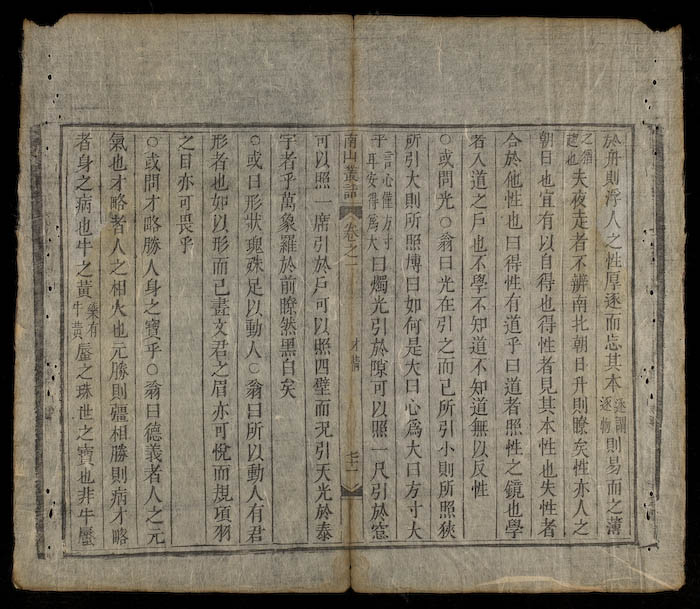 於舟則浮人之性厚逐而忘其本逐謂逐物則易而之薄
之猶也夫夜走者不辨南北朝日升則瞭矣性亦人之
朝日也宜有以自得也得性者見其本性也失性者
合於他性也曰得性有道乎曰道者照性之鏡也學
者入道之戶也不學不知道不知道無以反性
○或問光○翁曰光在引之而已所引小則所照狹
所引大則所照博曰如何是大曰心爲大曰方寸大
乎言心僅方寸耳安得爲大曰燭光引於隙可以照一尺引於窓
南山叢話 卷之一
可以照一席引於戶可以照四壁而況引天光於泰
宇者乎萬象羅於前瞭然黑白矣
○或曰形狀瑰殊足以動人○翁曰所以動人有君
形者也如以形而已畫文君之眉亦可悅而規項羽
之目亦可畏乎
○或問才略勝人身之寶乎○翁曰德義者人之元
氣也才略者人之相火也元勝則彊相勝則病才略
者身之病也牛之黃藥有牛黃蜃之珠世之寶也非牛蜃